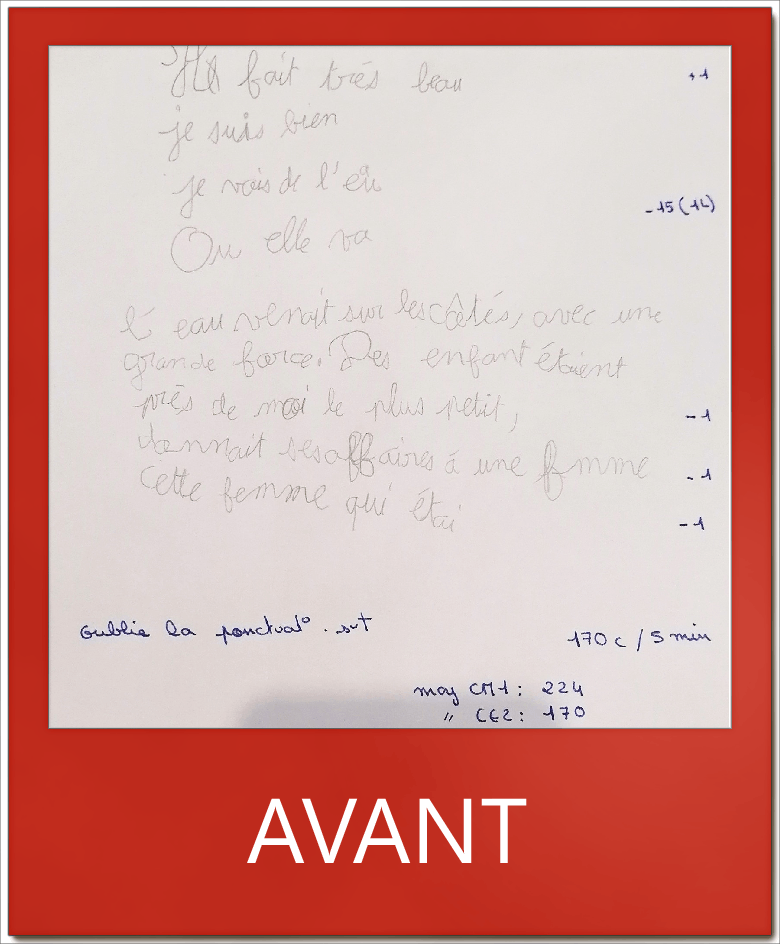 Il fait très beau +1
je suis bien
je vois de l'eau
-15 (1L)
Ou elle va
L'eau venait sur les côtés, avec une
grande force. Des enfant étaient
près de moi le plus petit, -1
donnait ses affaires à une femme -1
Cette femme qui étai -1
oublie la ponctuat° . svt
170 c / 5 min
moy CM1 : 224
" CE2 : 170
AVANT